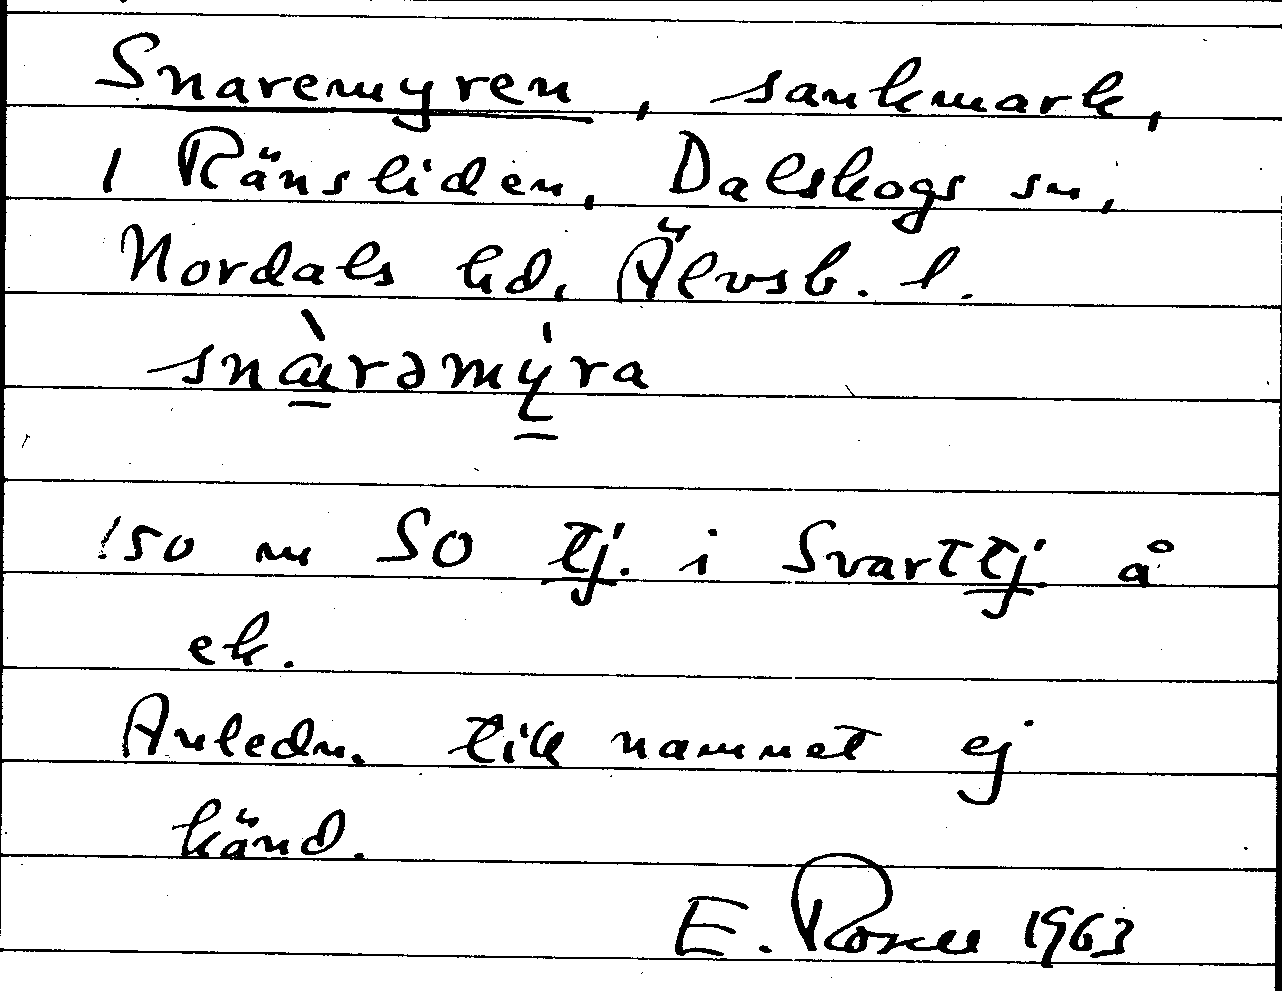 Snaremyren, sankmark,
i Ränsliden, Dalskogs sn,
Nordals hd, Älvsb. l.
snæ̀rəmy̍ra
150 m SO tj. i Svarttj. å
ek.
Anledn. till namnet ej
känd.
E. Rosell 1963